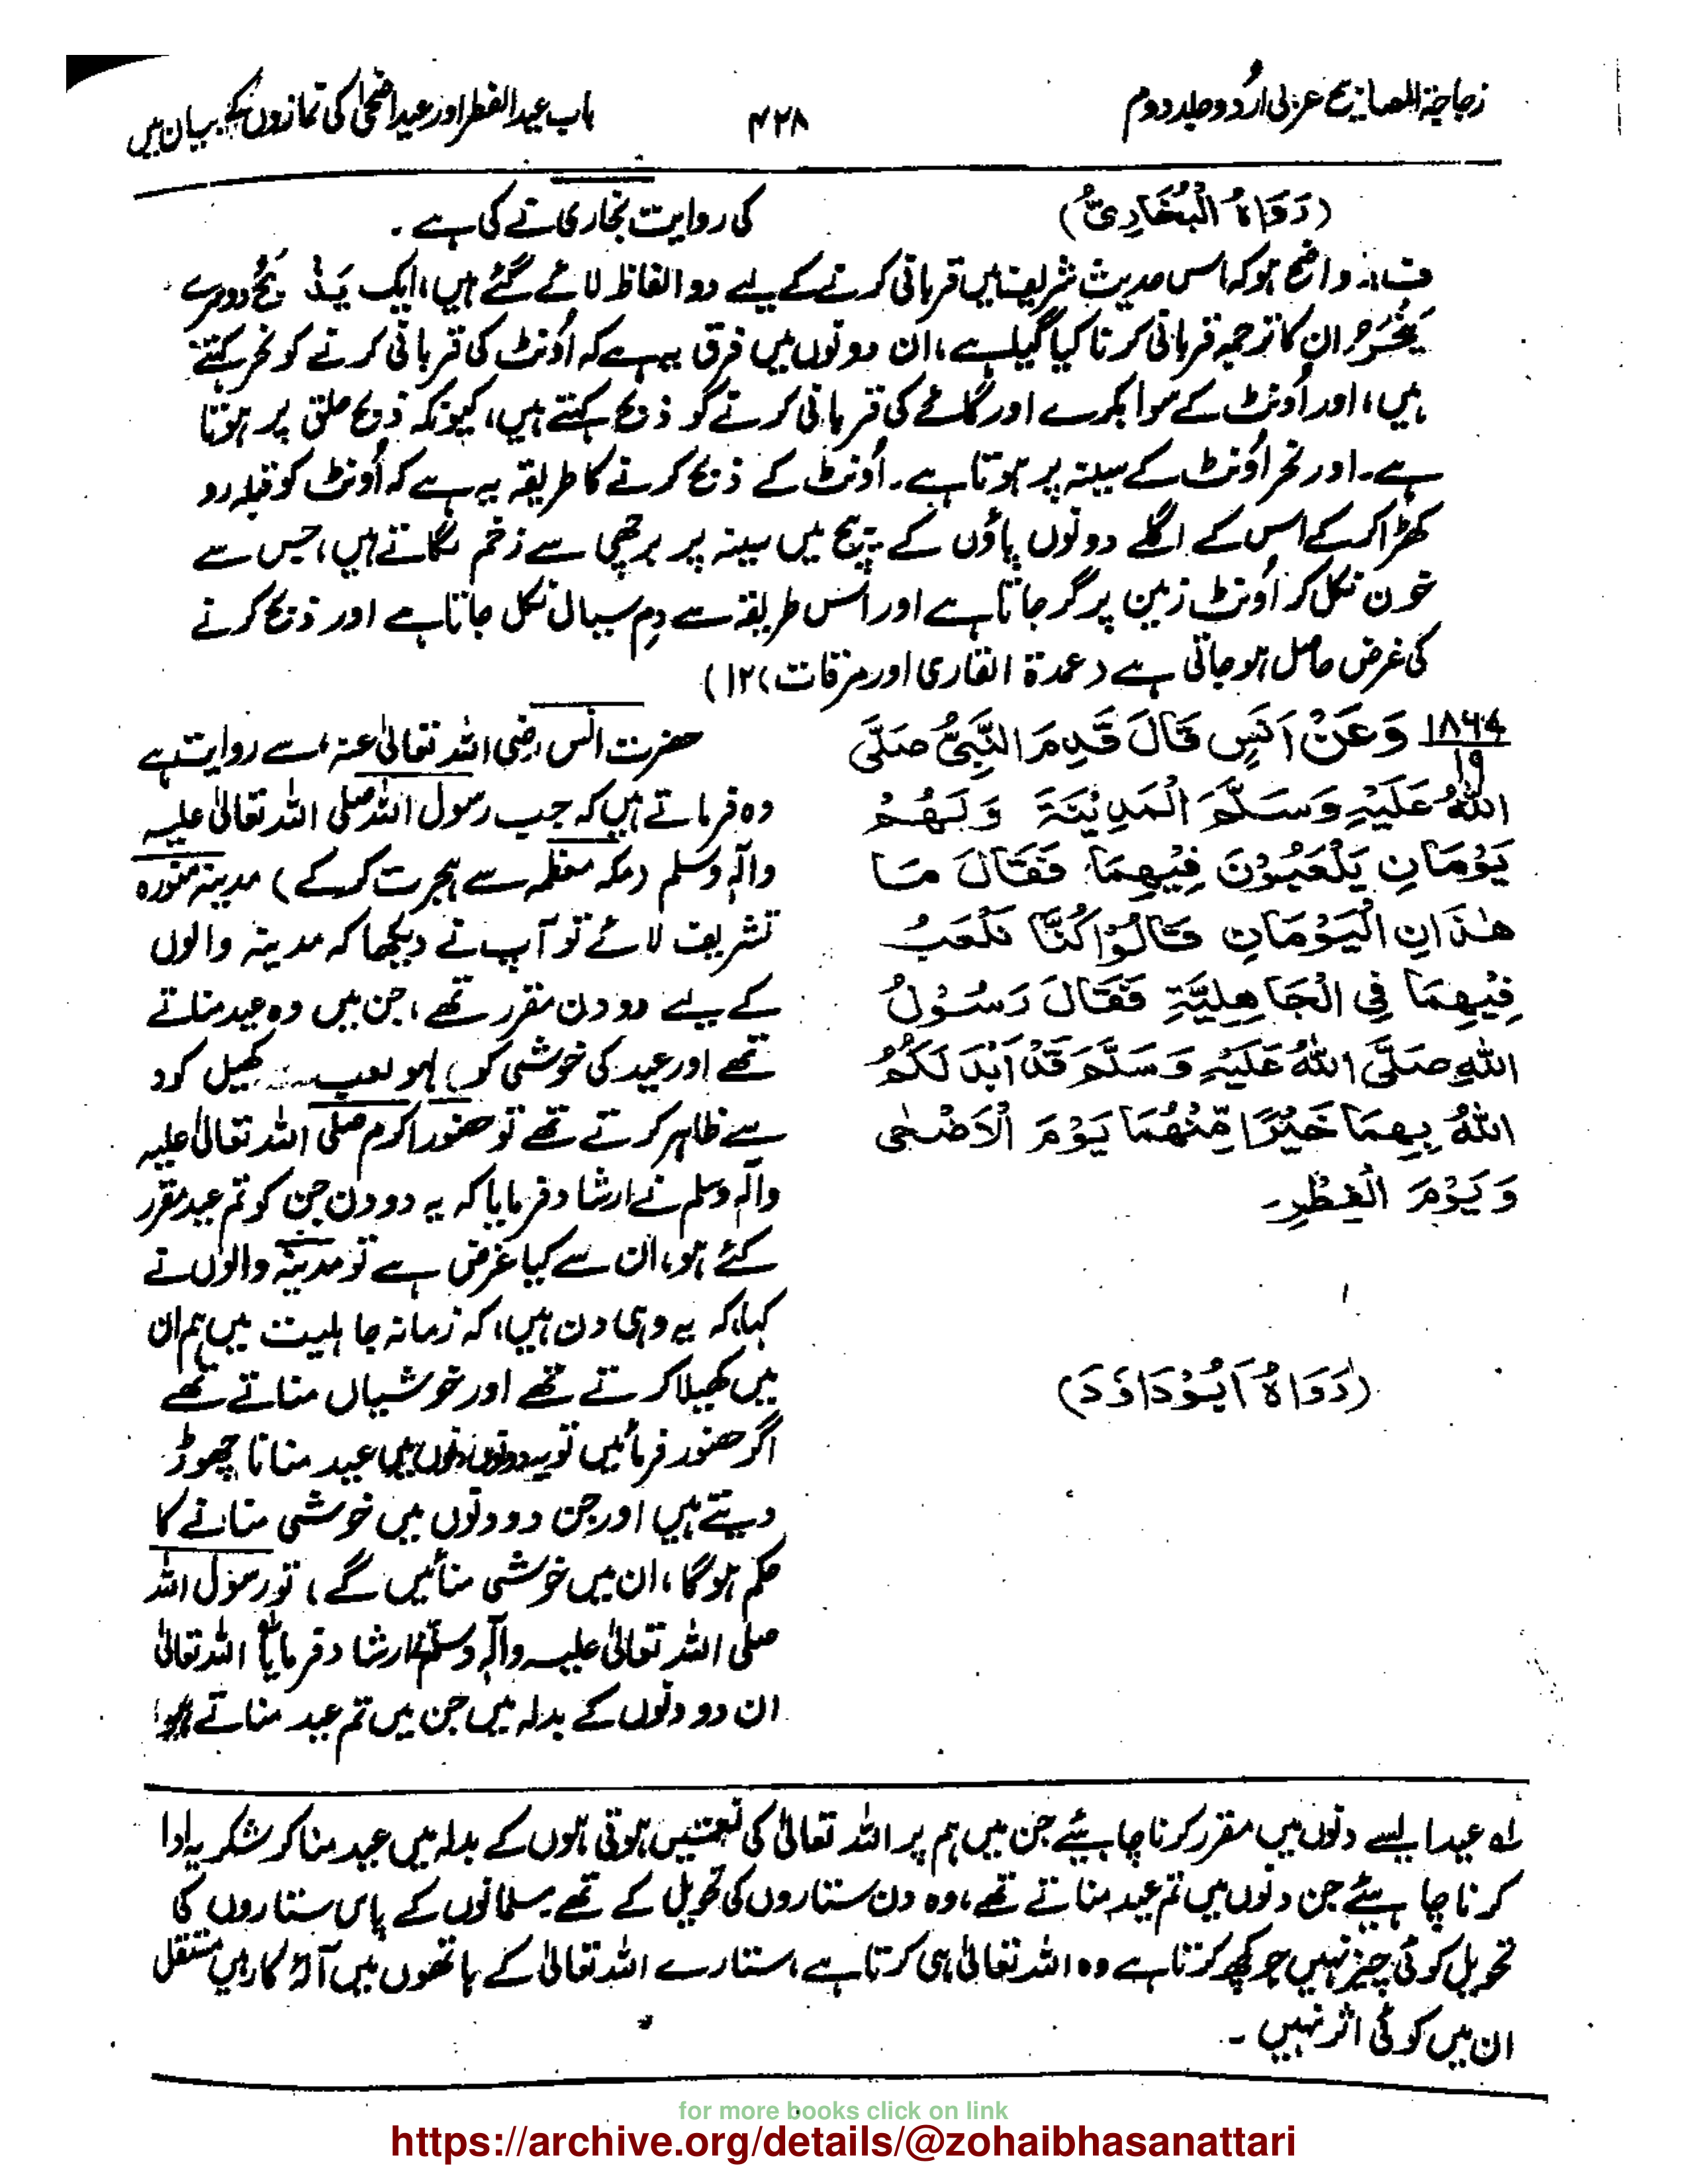 زجاجۃ المصابیح عربی اردو جلد دوم
۴۲۸
باب عید الفطر اور عید اضحیٰ کی نمازوں کے بیان میں
(رَوَاہُ الْبُخَارِیُّ)
کی روایت بخاری نے کی ہے ۔
ف:۔ واضح ہو کہ اس حدیث شریف میں قربانی کرنے کے لیے دو الفاظ لائے گئے ہیں، ایک یَذْبَحُ دوسرے
یَنْحَرُ، ان کا ترجمہ قربانی کرنا کیا گیا ہے، ان دونوں میں فرق یہ ہے کہ اُونٹ کی قربانی کرنے کو نحر کہتے
ہیں، اور اُونٹ کے سوا بکرے اور گائے کی قربانی کرنے کو ذبح کہتے ہیں، کیونکہ ذبح حلق پر ہوتا
ہے۔ اور نحر اُونٹ کے سینہ پر ہوتا ہے۔ اُونٹ کے ذبح کرنے کا طریقہ یہ ہے کہ اُونٹ کو قبلہ رو
کھڑا کر کے اس کے اگلے دونوں پاؤں کے بیچ میں سینہ پر برچھی سے زخم لگاتے ہیں، جس سے
خون نکل کر اُونٹ زمین پر گر جاتا ہے اور اس طریقہ سے دمِ سیال نکل جاتا ہے اور ذبح کرنے
کی غرض حاصل ہو جاتی ہے (عمدۃ القاری اور مرقات، ۱۲)
۱۸۶۴
۱۹
وَعَنْ اَنَسٍ قَالَ قَدِمَ النَّبِیُّ صَلَّی
اللّٰہُ عَلَیْہِ وَسَلَّمَ الْمَدِیْنَۃَ وَلَہُمْ
یَوْمَانِ یَلْعَبُوْنَ فِیْہِمَا فَقَالَ مَا
ھٰذَانِ الْیَوْمَانِ قَالُوْا کُنَّا نَلْعَبُ
فِیْہِمَا فِی الْجَاہِلِیَّۃِ فَقَالَ رَسُوْلُ
اللّٰہِ صَلَّی اللّٰہُ عَلَیْہِ وَسَلَّمَ قَدْ اَبْدَلَکُمُ
اللّٰہُ بِہِمَا خَیْرًا مِّنْہُمَا یَوْمَ الْاَضْحٰی
وَیَوْمَ الْفِطْرِ۔
(رَوَاہُ اَبُوْدَاوٗدَ)
حضرت انس رضی اللہ تعالیٰ عنہ، سے روایت ہے
وہ فرماتے ہیں کہ جب رسول اللہ صلی اللہ تعالیٰ علیہ
واٰلہ وسلم (مکہ معظمہ سے ہجرت کر کے) مدینہ منورہ
تشریف لائے تو آپ نے دیکھا کہ مدینہ والوں
کے لیے دو دن مقرر تھے، جن میں وہ عید مناتے
تھے اور عید کی خوشی کو لہو لعب کھیل کود
سے ظاہر کرتے تھے تو حضور اکرم صلی اللہ تعالیٰ علیہ
واٰلہ وسلم نے ارشاد فرمایا کہ یہ دو دن جن کو تم عید مقرر
کئے ہو، ان سے کیا غرض ہے تو مدینہ والوں نے
کہا، کہ یہ وہی دن ہیں، کہ زمانہ جاہلیت میں ہم ان
میں کھیلا کرتے تھے اور خوشیاں مناتے تھے
اگر حضور فرمائیں تو یہ دونوں دنوں میں عید منانا چھوڑ
دیتے ہیں اور جن دو دنوں میں خوشی منانے کا
حکم ہوگا، ان میں خوشی منائیں گے، تو رسول اللہ
صلی اللہ تعالیٰ علیہ واٰلہ وسلم نے ارشاد فرمایا اللہ تعالیٰ
ان دو دنوں کے بدلہ میں جن میں تم عید مناتے ہو
لہ عید ایسے دنوں میں مقرر کرنا چاہیئے جن میں ہم پر اللہ تعالیٰ کی نعمتیں ہوتی ہوں کے بدلہ میں عید منا کر شکریہ ادا
کرنا چاہیئے جن دنوں میں تم عید مناتے تھے، وہ دن ستاروں کی تحویل کے تھے مسلمانوں کے پاس ستاروں کی
تحویل کوئی چیز نہیں جو کچھ کرتا ہے وہ اللہ تعالیٰ ہی کرتا ہے، ستارے اللہ تعالیٰ کے ہاتھوں میں آلۂ کار ہیں مستقل
ان میں کوئی اثر نہیں ۔
for more books click on link
https://archive.org/details/@zohaibhasanattari